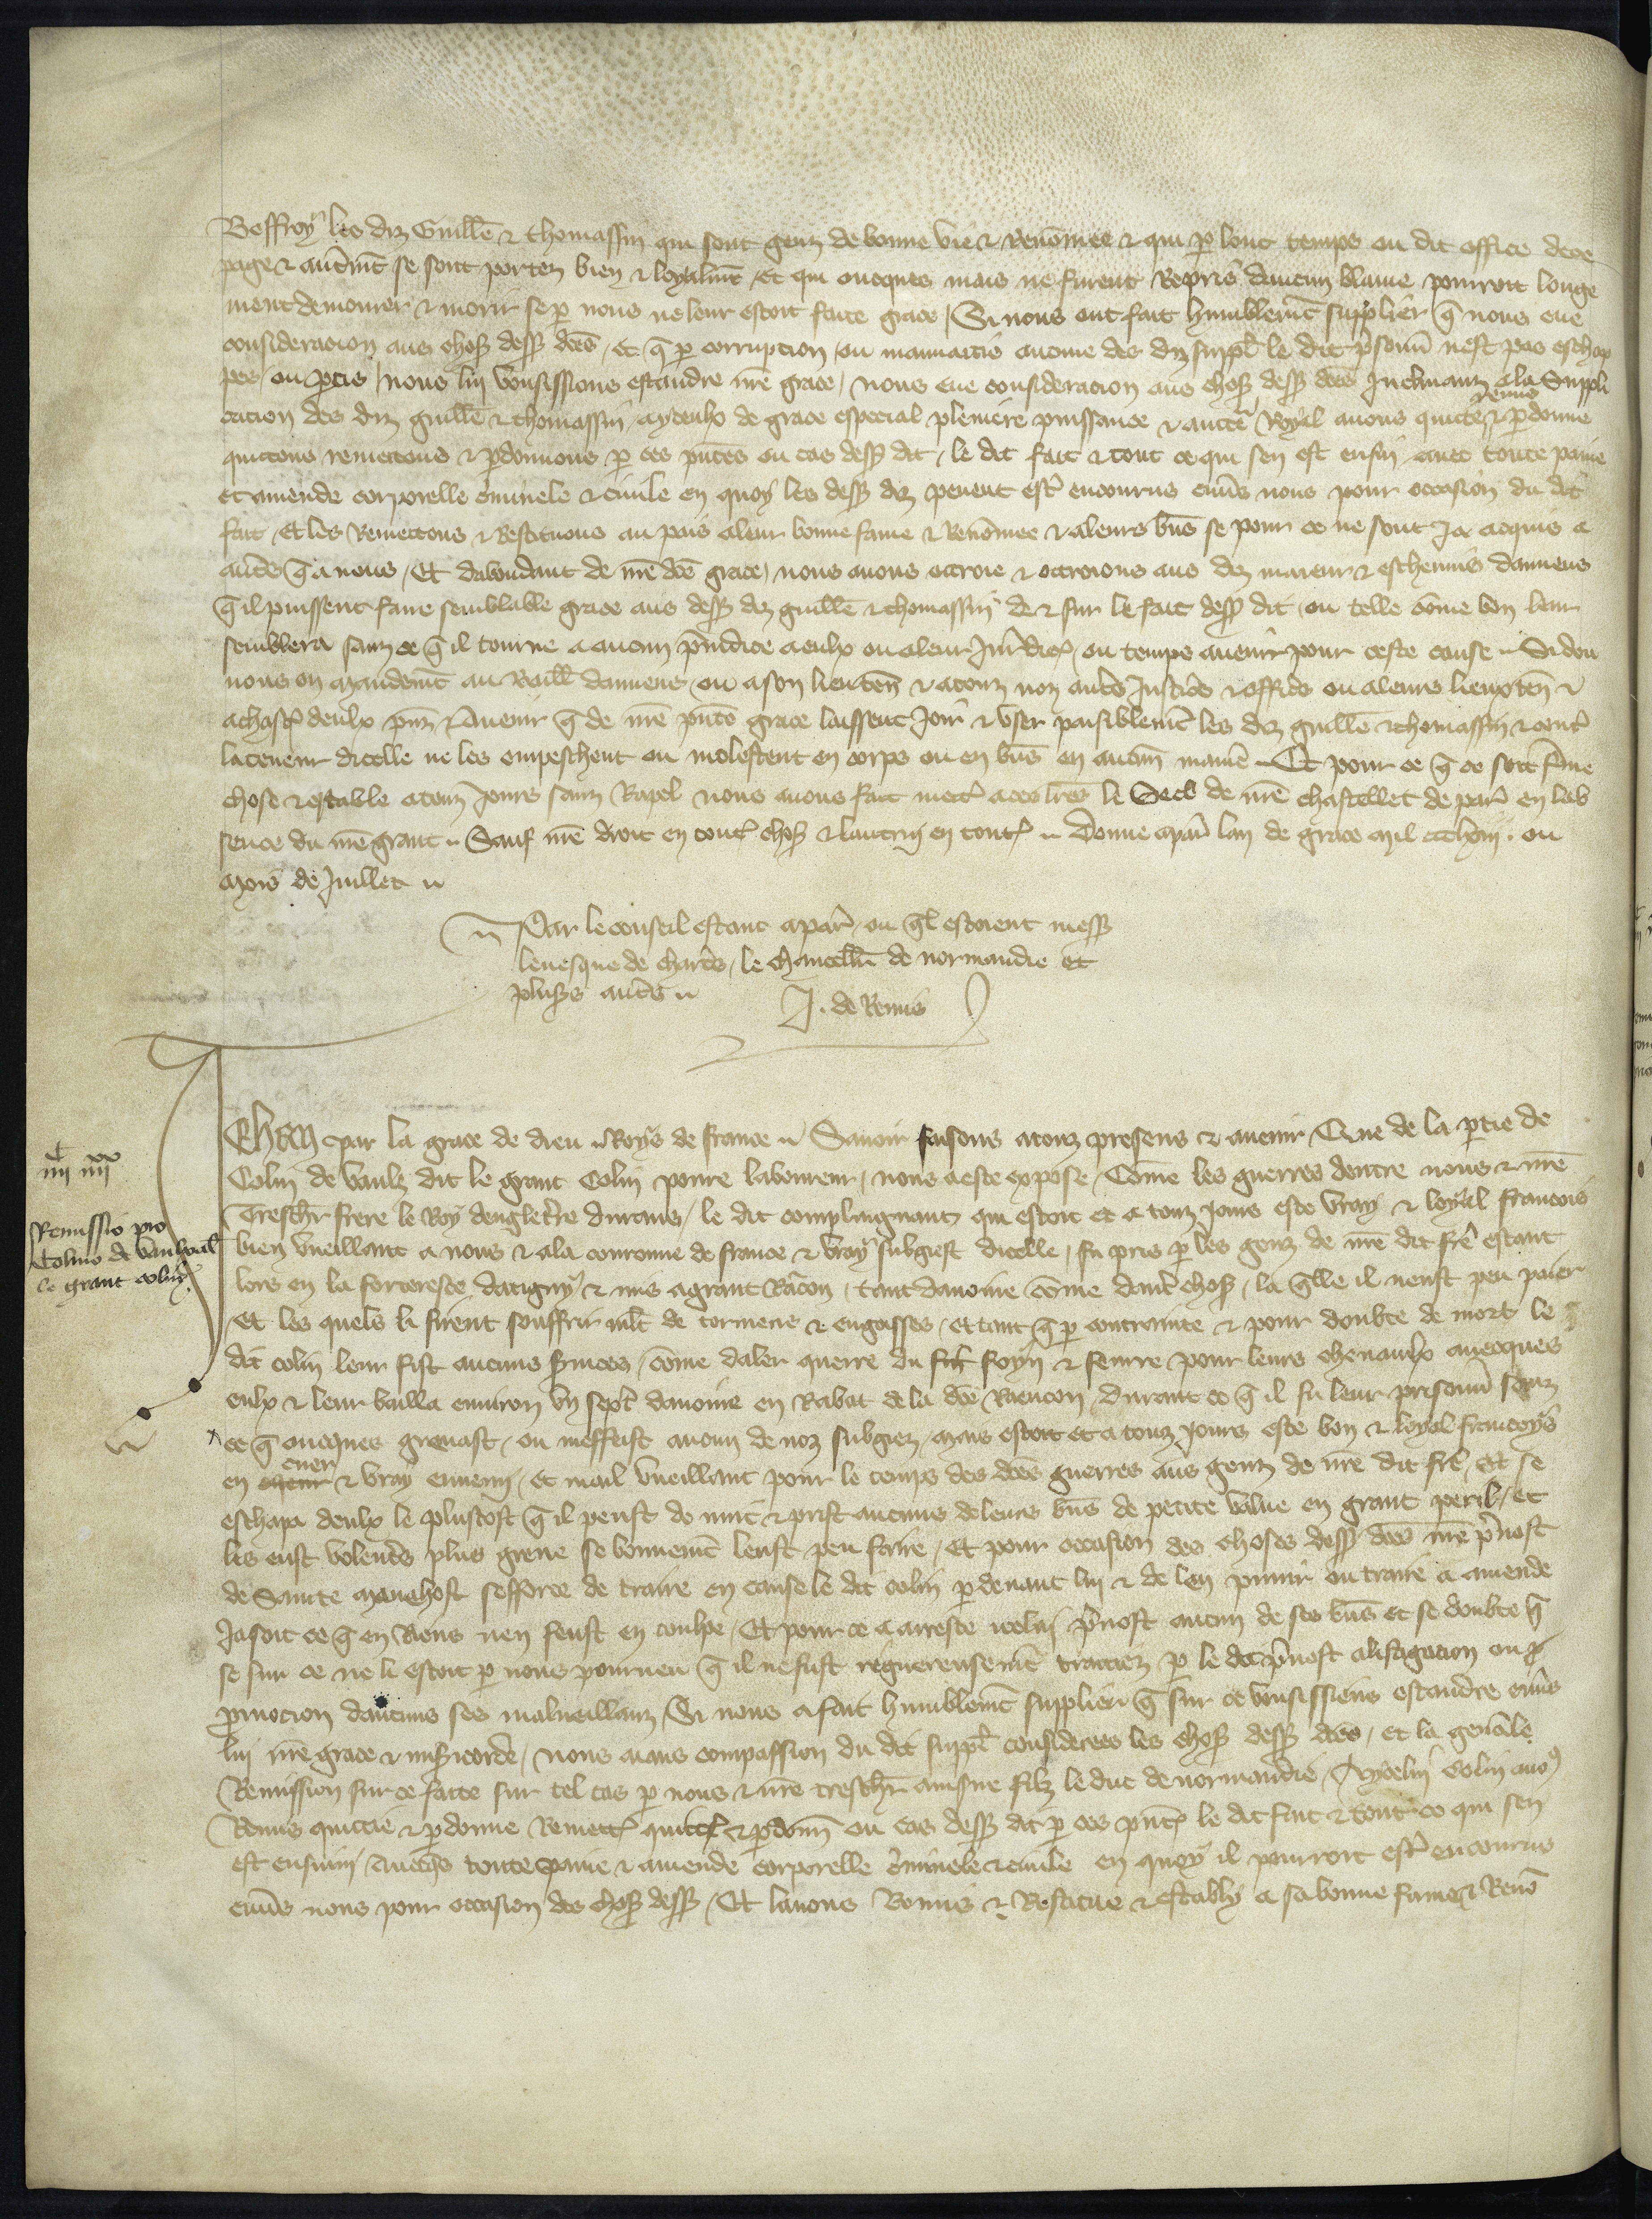 Beffroy les diz Guille & thomassin qui sont genz de bonne vie & Renōmee & qui p long temps ou dit office dece
page & autremt se sont portez bien & loyalmt / et qui oncques mais ne furent Repris daucun blame pourroit longe
ment demourer & morir se p nous ne leur estoit faite grace / Si nous ont fait humblemt supplier q̄ nous eue
consideracion aus choses dess dces / et q̄ p corrupcion ou mauuaitie aucune des diz suppl le dit prisonn nest pas eschap
pes ou partis / nous leur vousissions estandre nre grace / nous eue consideracion aus choses dess dces Inclinanz ala Suppli
cacion des diz guille & thomassin aycculx de grace especial pleniere puissance & auctē Royal auons quitte remis & pdonne
quictons remettons & pdonnons p ces pntes ou cas dess dit / le dit fait & tout ce qui sen est ensui auec toute paine
et amende corporelle criminele & ciuile en quoy les dess diz peuent estre encourus enuers nous pour occasion du dit
fait / Et les Remettons & Restituons au pais aleur bonne fame & Renōmee & aleurs bns se pour ce ne sont Ja acquis a
autres q̄ a nous / Et dabondant de nre dce grace / nous auons ottroie & ottroions aus diz maieur & escheuins damiens
q̄ il puissent faire semblable grace aus dess diz guille & thomassin de & sur le fait dess dit / ou telle cōme bon leur
semblera sanz ce q̄ il tourne a aucun preiudice a eulx ou aleur Juridic / ou temps auenir pour ceste cause Si don
nons en mandemt au Baill damiens / ou a son lieuten & a touz noz autres Justices & offices ou aleurs lieuxten &
a chascun deulx pnz & Auenir q̄ de nre pnte grace laissent Joir & vser paisiblement les diz guille & thomassin & contre
la teneur dicelle ne les empeschent ou molestent en corps ou en bns en aucun manie Et pour ce q̄ ce soit ferme
chose & estable a touz Jours sanz Rapel nous auons fait mettre a ces lres le Seel de nre chastellet de paris en lab
sence du nre grant Sauf nre droit en toutes choses & lautruy en toutes Donne a paris lan de grace mil ccclxiij ou
mois de Juillet
Par le conseil estant a paris ou ql estoient mess
leuesque de chartres / le chancell de normandie et
pluss autres J. de Remis
iiij iiij xx
Remissio pro
Colino de Vaulz dit
le grant colin
Jehan par la grace de dieu Roys de france Sauoir faisons a touz presens & auenir Que de la ptie de
Colin de Vaulz dit le grant Colin poure laboureur / nous a este expose / Cōme les guerres dentre nous & nre
Treschr frere le Roy dengletre durans / le dit complaignant qui estoit et a touz jours este vray & loyal francois
bien vueillant a nous & ala couronne de france & vray subgiest dicelle / fu pris p les genz de nre dit frere estant
lors en la forteresce dattigny & mis a grant Rācon / tant dauoine cōme dautres choses / la qlle il neust peu paier
Et les quels li firent souffrir mlt de tormens & engoisses / et tant q̄ p contrainte & pour doubte de mort le
dit colin leur fist aucuns seruices / cōme daler querre du foyn & feurre pour leurs cheuaulx auecques
eulx & leur bailla enuiron vn sept dauoine en Rabat de la dce Raencon / durant ce q̄ il fu leur prisonn sanz
ce q̄ oncques greuast / ou meffeist aucun de noz subgiez / mais estoit et a touz jours este bon & loyal francoys
en cuer & vray ennemy / et mal vueillant pour le temps des dces guerres aus genz de nre dit frere / et se
eschapa deulx le plustost q̄ il peust de nuit & prist aucuns de leurs bns de petite value en grant peril / et
les eust volentrs plus greue se bonnemt leust peu faire / Et pour occasion des choses dess dces nre preuost
de Sainte manehost sefforce de traire en cause le dit colin p deuant lui & de len punir ou traire a amende
Ja soit ce q̄ en Riens nen feust en coulpe / Et pour ce a arreste icelui preuost aucun de ses bns et se doubte q̄
se sur ce ne li estoit p nous pourueu q̄ il ne fust rigoureusemt traictiez p le dit preuost alistigacion ou
pmocion daucuns ses malueillanz / Si nous a fait humblemt supplier q̄ sur ce vousissiens estandre enuers
lui nre grace & misericorde / nous aians compassion du dit suppl considerees les choses dess dces / et la genrale
Remission sur ce faite sur tel cas p nous & nre treschr ainsne filz le duc de normandie / Aycelui Colin auons
Remis quictie & pdonne Remettons quictons & pdonn ou cas dess dit p ces pntes le dit fait & tout ce qui sen
est ensuiui / Auecqs toute paine & amende corporelle criminele & ciuile en quoy il pourroit estre encourus
enuers nous pour occasion des choses dess / Et lauons Remis & Restitue & establi a sa bonne fame & Renō